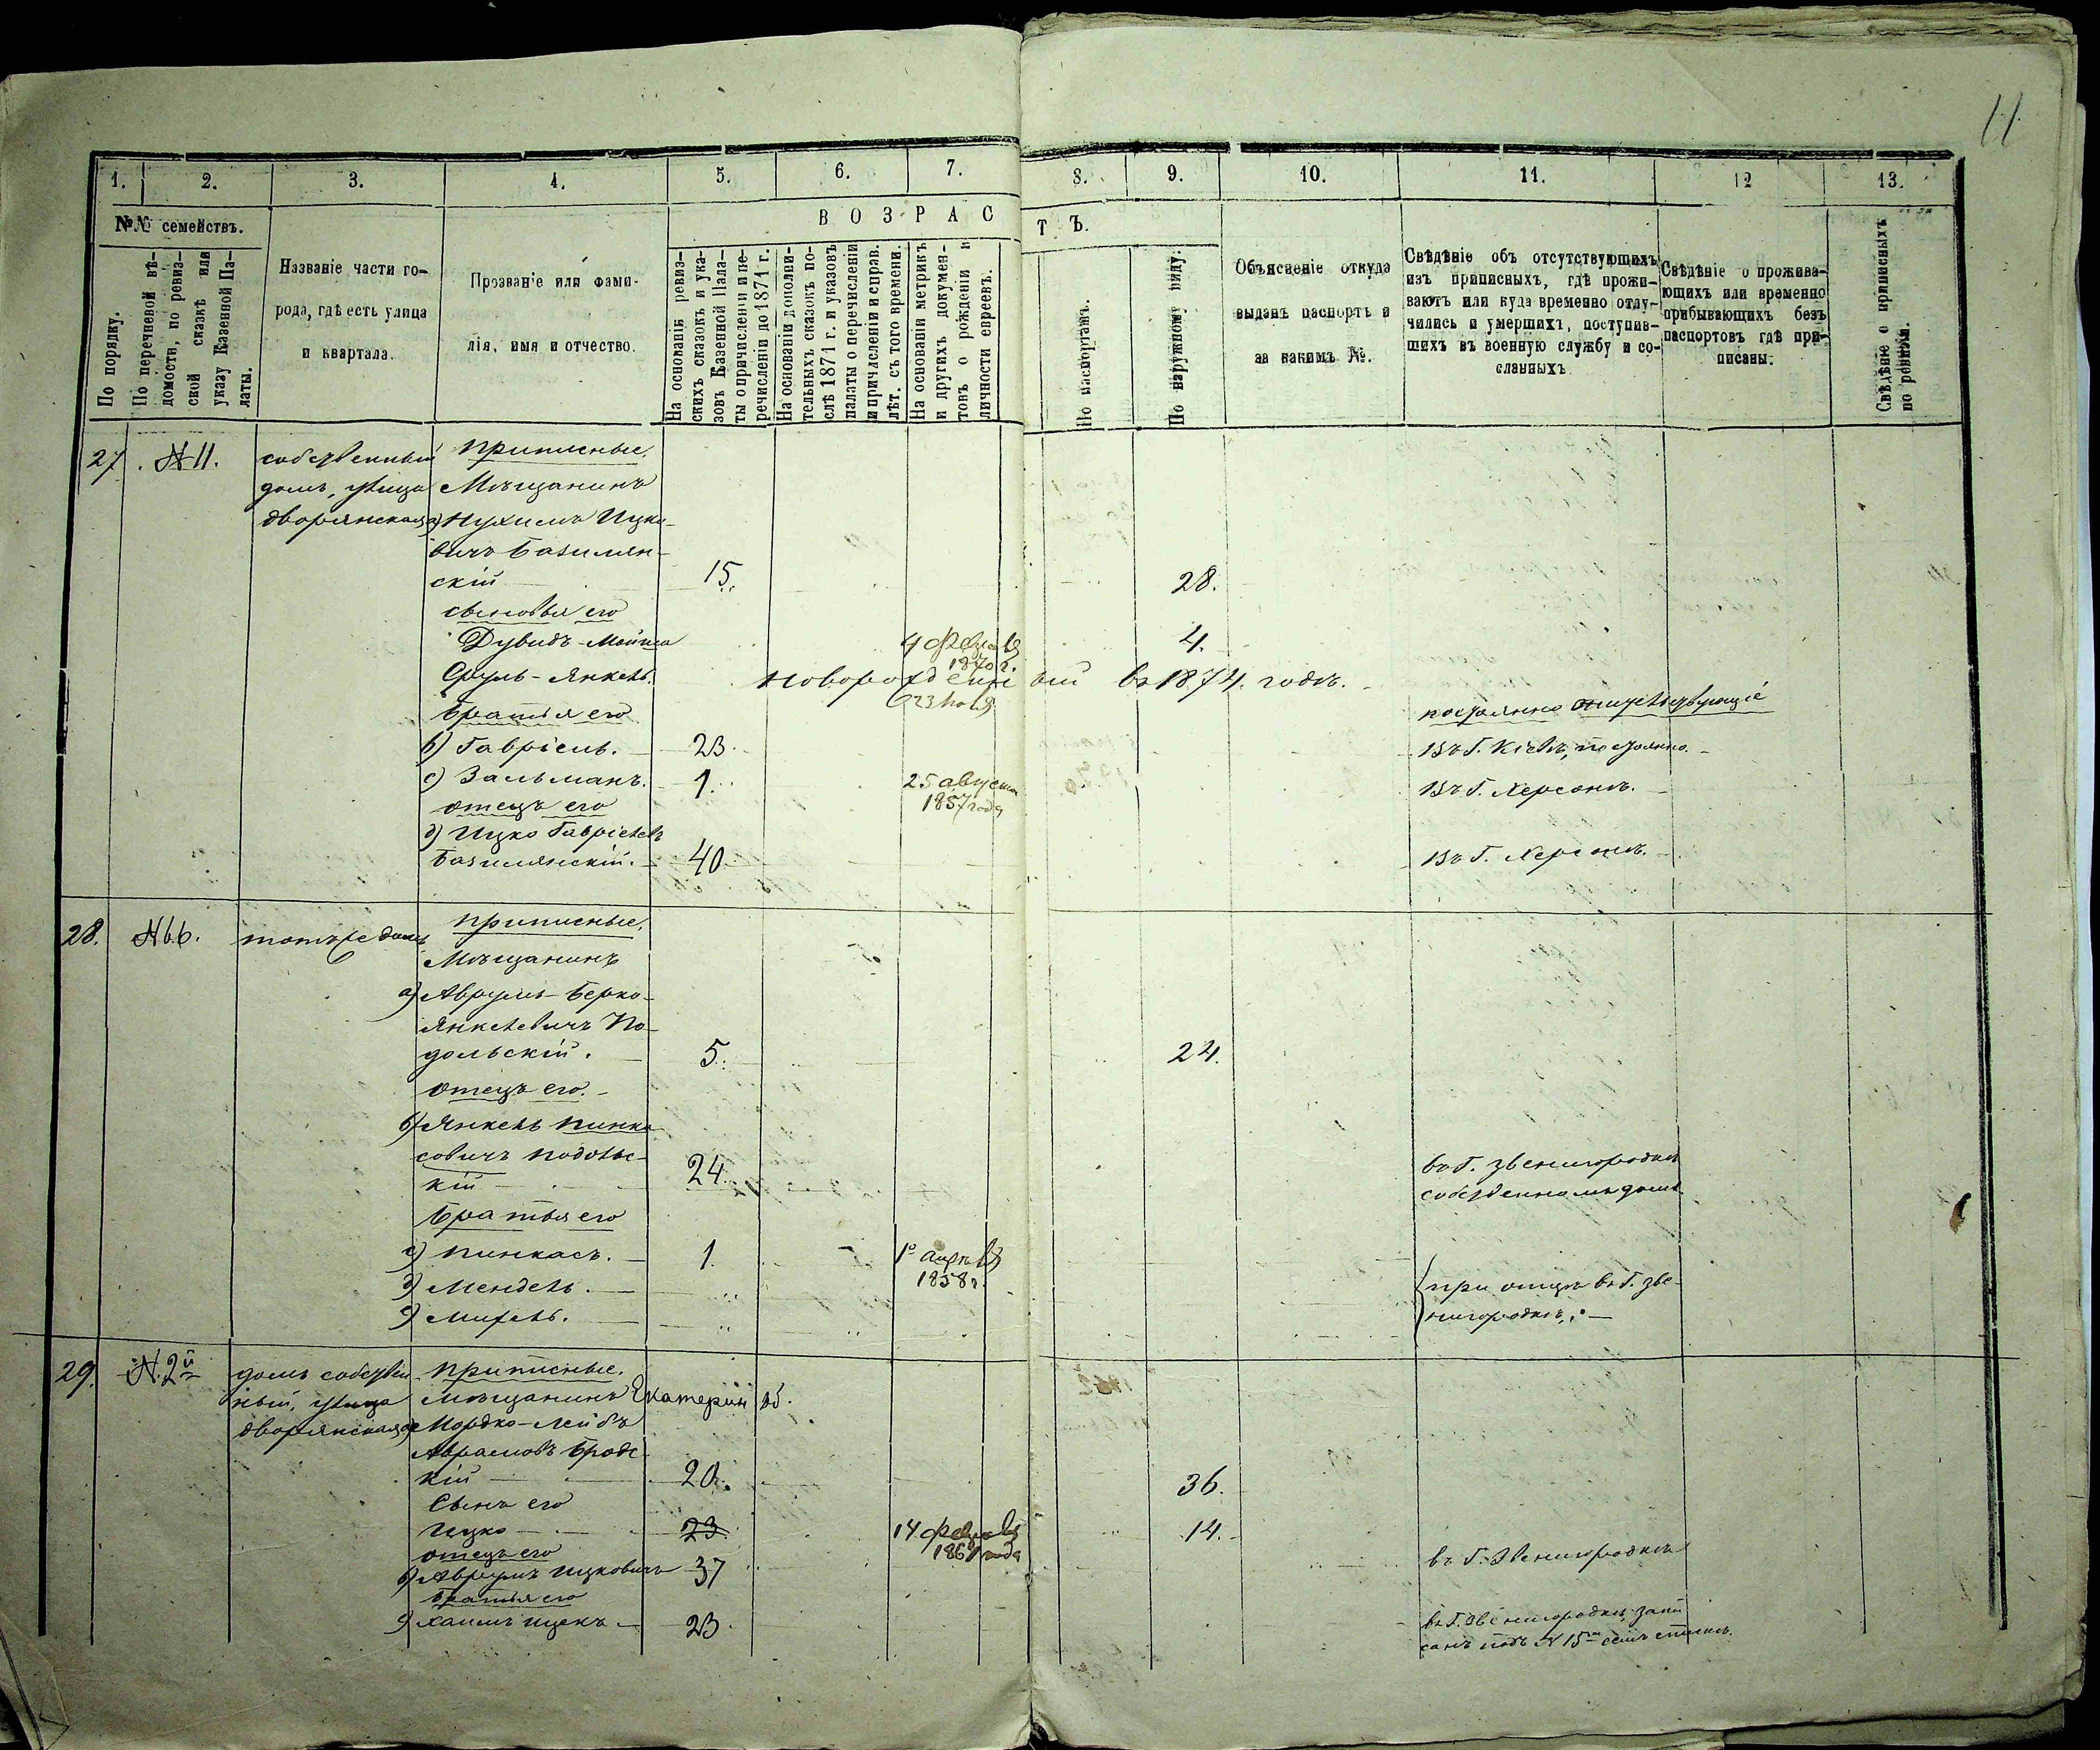 11
1. 2. 3. 4. 5. 6. 7. 8. 9. 10. 11. 12 13.
№№ семействъ.
По порядку.
По перечневой вѣ-
домости, по ревиз-
ской сказкѣ или
указу Казенной Па-
латы.
Названіе части го-
рода, гдѣ есть улица
и квартала.
Прозваніе или фами-
лія, имя и отчество.
ВОЗРАСТЪ.
На основаніи ревиз-
скихъ сказокъ и ука-
зовъ Казенной Пала-
ты о причисленіи и пе-
речисленіи до 1871 г.
На основаніи дополни-
тельныхъ сказокъ по-
слѣ 1871 г. и указовъ
палаты о перечисленіи
и причисленіи и справ.
лѣт. съ того времени.
На основаніи метрикъ
и другихъ докумен-
товъ о рожденіи и
личности евреевъ.
По паспортамъ.
По наружному виду.
Объясненіе откуда
выданъ паспортъ и
за какимъ №.
Свѣдѣніе объ отсутствующихъ
изъ приписныхъ, гдѣ прожи-
ваютъ или куда временно отлу-
чились и умершихъ, поступив-
шихъ въ военную службу и со-
сланныхъ
Свѣдѣніе о прожива-
ющихъ или временно
прибывающихъ безъ
паспортовъ гдѣ при-
писаны.
Свѣдѣніе о приписныхъ
по ревизіи.
27. № 11. собственный приписные.
домъ, улица Мѣщанинъ
дворянская а) Нухимъ Ицко-
вичъ Базилян-
скій 15. 28.
сыновья его
Дувидъ-Мойша 4 февраля 1870 г. 4.
Сруль-Янкель. новорожденный въ 1874 годѣ.
23
Братья его постоянно отсутствующіе
б) Гавріель. 23. Въ г. Кіевѣ, постоянно.
с) Зальманъ. 1. 25 августа 1857 года Въ г. Херсонѣ.
отецъ его
д) Ицко Гавріелевъ
Базилянскій. 40 Въ г. Херсонѣ.
28. № 66. тотъ же домъ приписные.
Мѣщанинъ
а) Аврумъ-Берко-
Янкелевичъ По-
дольскій. 5. 24.
отецъ его.
б) Янкель Пинка-
совичъ Подольс-
кій 24. въ г. Звенигородкѣ
собственномъ домѣ
Братья его
с) Пинкасъ. 1. 1 апрѣля 1858 г.
д) Мендель. при отцѣ въ г. Зве-
нигородкѣ.
29. № 2й домъ собствен- приписные.
ный, улица Мѣщанинъ Екатериноб.
дворянская а) Мордко-Лейбъ
Аврамовъ Бродс-
кій 20. 36.
Сынъ его
Ицко 23 14 февраля 14.
отецъ его
б) Аврумъ Ицковичъ 37 въ г. Звенигородкѣ
Братья его
с) Хаимъ Ицекъ 23. въ г. Звенигородкѣ запи-
санъ подъ № 15